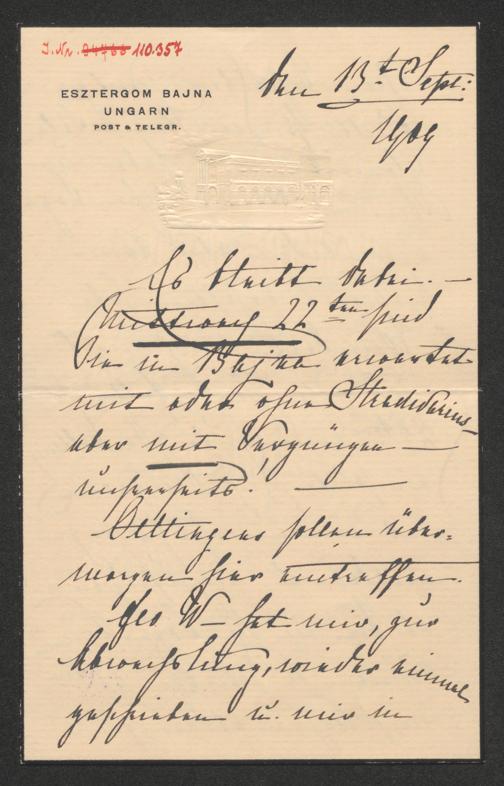 I. Nr. 110.357
ESZTERGOM BAJNA
UNGARN
POST & TELEGR.
den 13t. Sept:
1909
Es bleibt dabei. —
Mittwoch 22ten sind
Sie in Bajna erwartet
mit oder ohne Stradivarius —
aber mit Vergnügen —
unsererseits. —
Oettingens sollen über=
morgen hier eintreffen.
W — hat mir, zur
Abwechslung, wieder einmal
geschrieben u. mir in